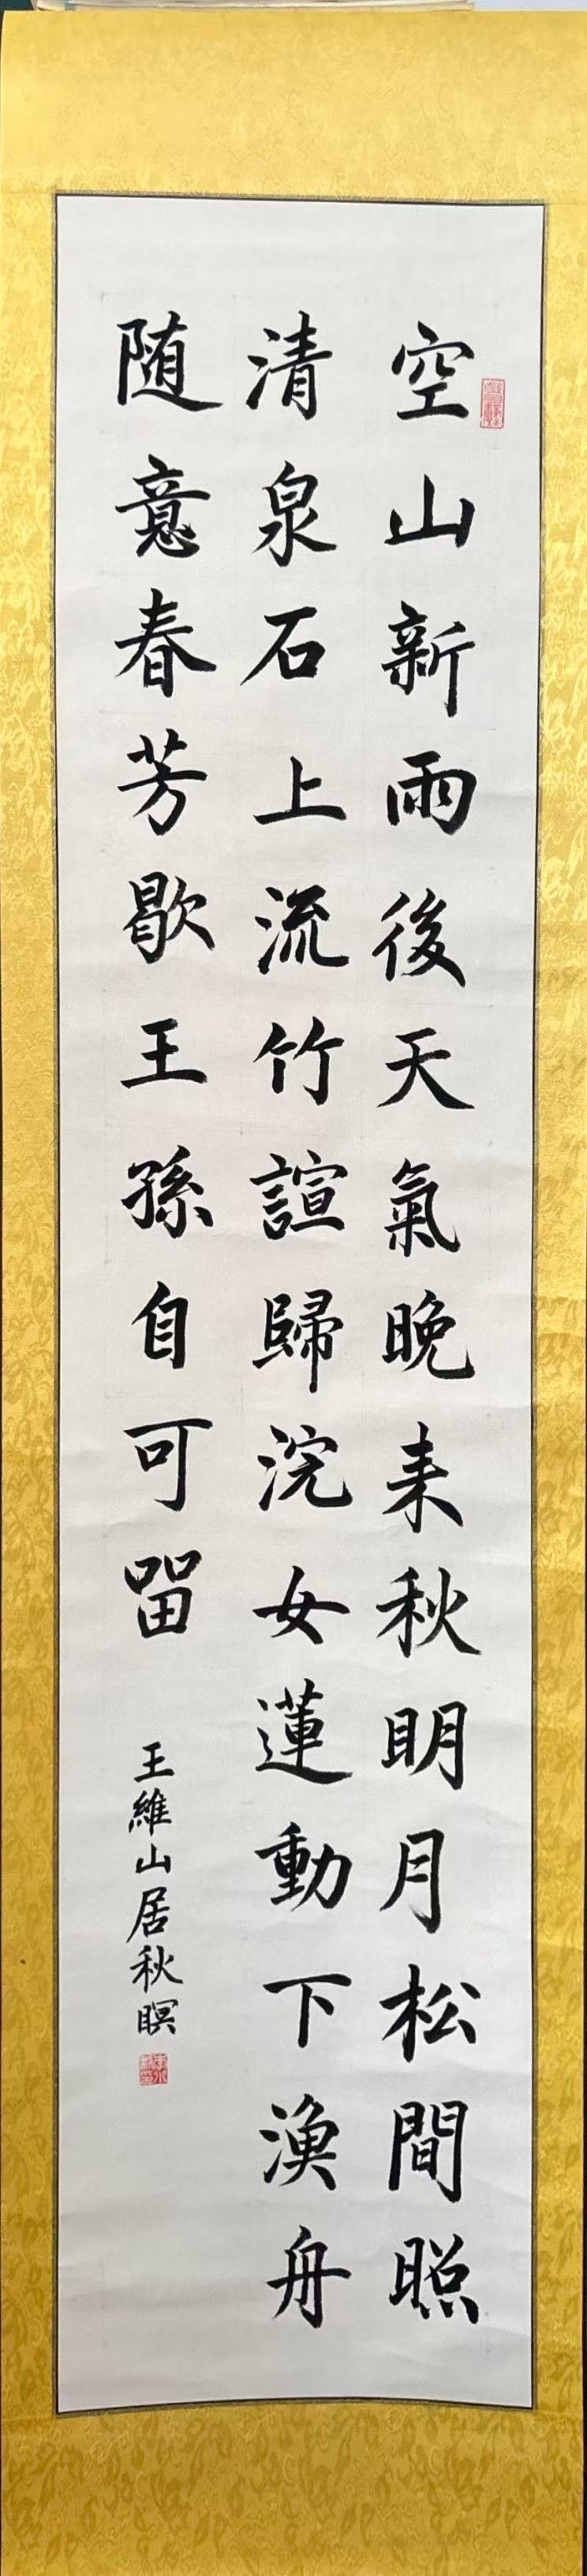 空山新雨後天氣晚来秋明月松間照
清泉石上流竹諠歸浣女蓮動下漁舟
随意春芳歇王孫自可留
王維山居秋暝